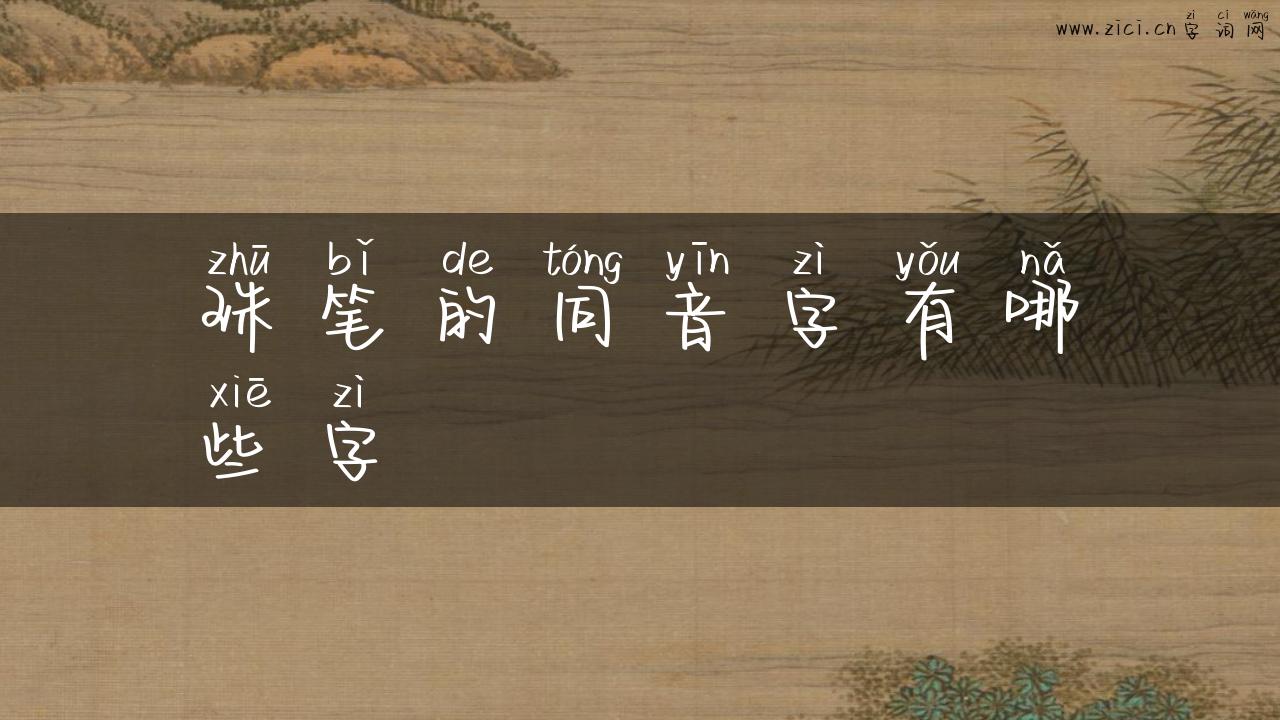 zì cí wǎng
www.zici.cn 字词网
zhū bǐ de tóng yīn zì yǒu nǎ
珠笔的同音字有哪
xiē zì
些字